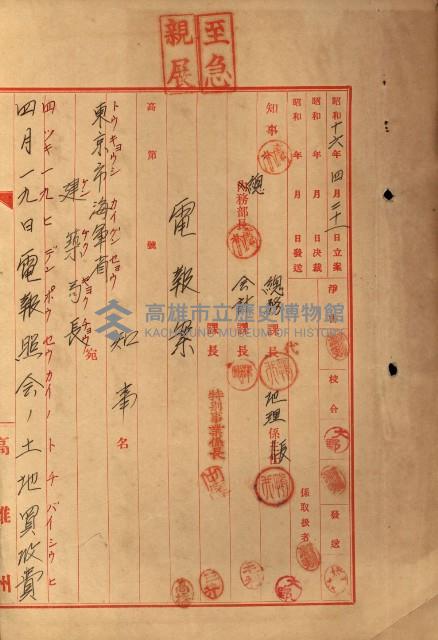 至急
親展
昭和十六年四月二十一日立案
昭和 年 月 日決裁
昭和 年 月 日發送
淨書
校合
發送
知事
總務部長
總務課長
會計課長
課長
代
地理係長
特別事業係長
係取扱者
電報案
高第 號
知事名
トウキョウシ カイグンセウ
東京市海軍省
ケンチクキョクチョウ
建築局長宛
四ツキ一九ヒ デンポウ セウカイノ トチバイシウヒ
四月一九日電報照会ノ土地買收費
高雄州
高雄市立歷史博物館
KAOHSIUNG MUSEUM OF HISTORY